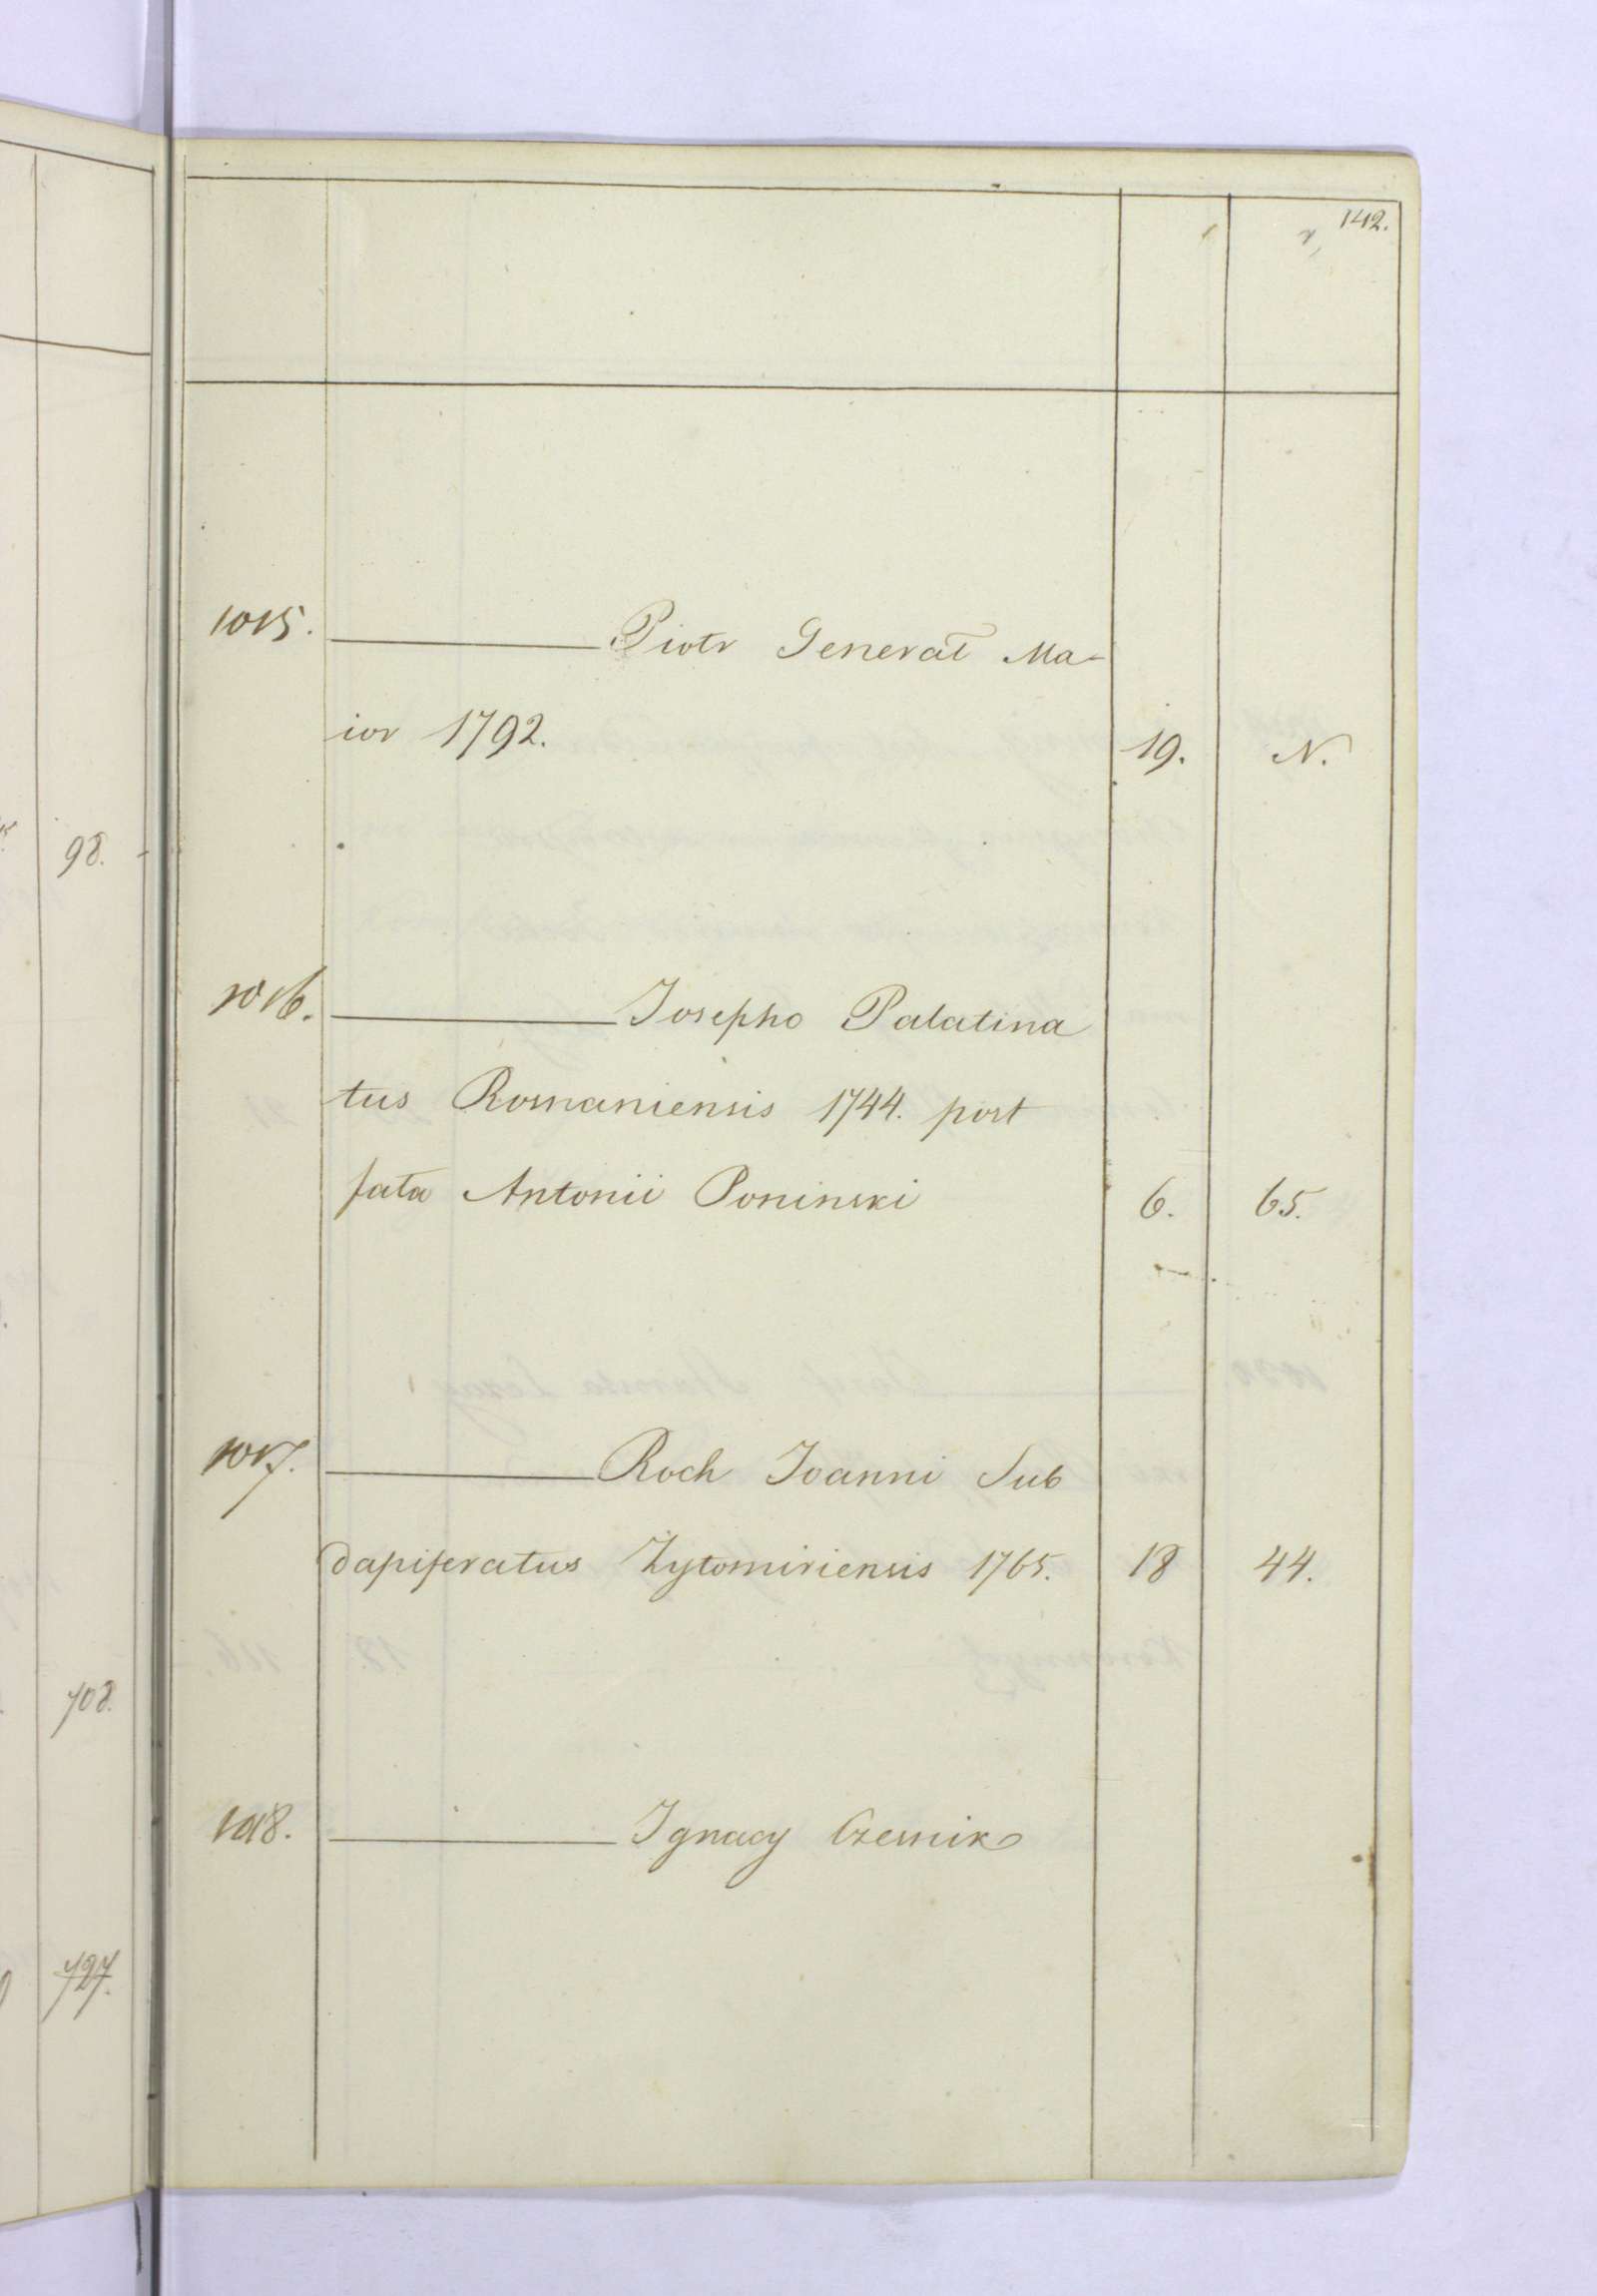 142.
1015. Piotr Generał Ma-
ior 1792. 19. N.
98.
1016. Josepho Palatina
tus Romaniensis 1744. post
fata Antonii Poninski 6. 65.
1017. Roch Joanni Sub
dapiferatus Żytomiriensis 1765. 18 44.
708.
1018. Ignacy Czesnik
727.